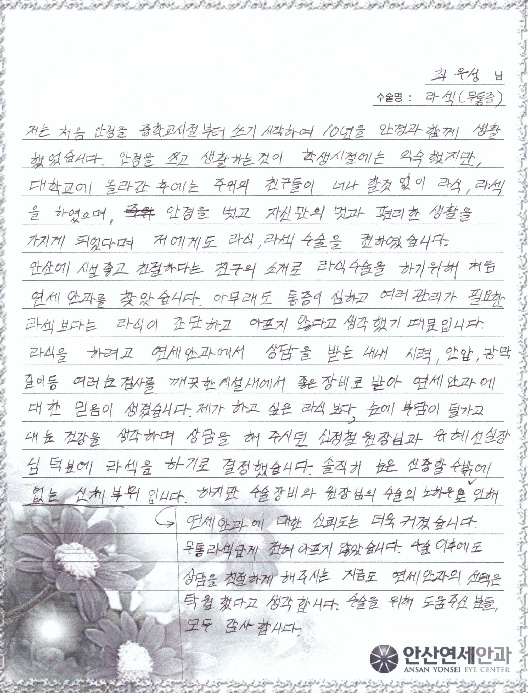 최우성 님
수술명 : 라섹(무통증)
저는 처음 안경을 중학교시절부터 쓰기 시작하여 10년을 안경과 함께 생활
했었습니다. 안경을 쓰고 생활하는것이 학생시절에는 익숙했지만,
대학교에 올라간 후에는 주위의 친구들이 너나 할것 없이 라식, 라섹
을 하였으며, 안경을 벗고 자신만의 멋과 편리한 생활을
가지게 되었다며 저에게도 라식, 라섹 수술을 권하였습니다.
안산에 시설좋고 친절하다는 친구의 소개로 라식수술을 하기위해 처음
연세안과를 찾았습니다. 아무래도 통증이 심하고 여러관리가 필요한
라섹보다는 라식이 간단하고 아프지 않다고 생각했기 때문입니다.
라식을 하려고 연세안과에서 상담을 받는 내내 시력, 안압, 각막
길이등 여러 검사를 깨끗한 시설내에서 좋은 장비로 받아 연세안과에
대한 믿음이 생겼습니다. 제가 하고 싶은 라식보다, 눈에 부담이 덜가고
내 눈 건강을 생각하며 상담을 해 주시던 신정철 원장님과 유혜선실장
님 덕분에 라섹을 하기로 결정했습니다. 솔직히 눈은 신중할 수밖에
없는 신체부위 입니다. 하지만 수술장비와 원장님의 수술의 노하우로 인해
연세안과에 대한 신뢰도는 더욱 커졌습니다.
무통라섹답게 전혀 아프지 않았습니다. 수술 이후에도
상담을 친절하게 해주시는 지금도 연세안과의 선택은
탁월했다고 생각합니다. 수술을 위해 도움주신 분들,
모두 감사합니다.
안산연세안과
ANSAN YONSEI EYE CENTER